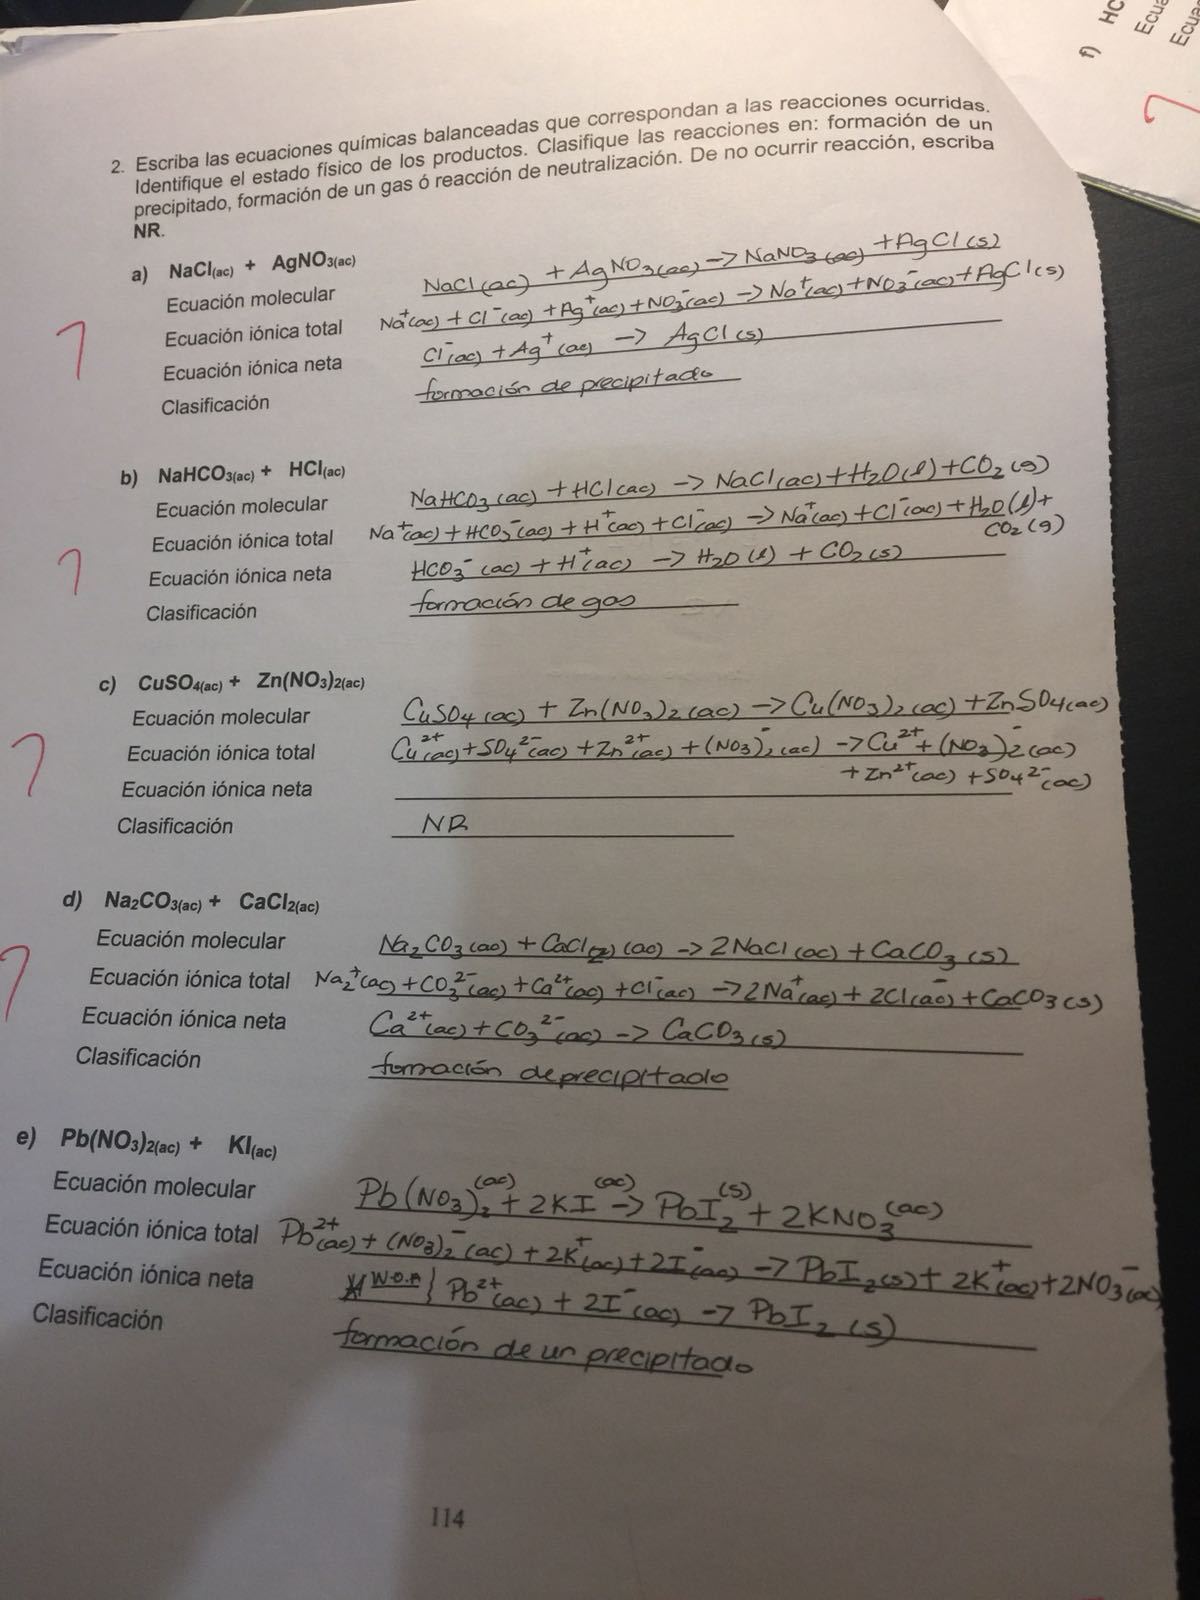 f) HC
Ecua
Ecua
2. Escriba las ecuaciones químicas balanceadas que correspondan a las reacciones ocurridas.
Identifique el estado físico de los productos. Clasifique las reacciones en: formación de un
precipitado, formación de un gas ó reacción de neutralización. De no ocurrir reacción, escriba
NR.
a) NaCl(ac) + AgNO3(ac)
Ecuación molecular NaCl(ac) + AgNO3(ac) -> NaNO3(ac) + AgCl(s)
Ecuación iónica total Na⁺(ac) + Cl⁻(ac) + Ag⁺(ac) + NO3⁻(ac) -> Na⁺(ac) + NO3⁻(ac) + AgCl(s)
Ecuación iónica neta Cl⁻(ac) + Ag⁺(ac) -> AgCl(s)
Clasificación formación de precipitado
b) NaHCO3(ac) + HCl(ac)
Ecuación molecular NaHCO3(ac) + HCl(ac) -> NaCl(ac) + H2O(l) + CO2(g)
Ecuación iónica total Na⁺(ac) + HCO3⁻(ac) + H⁺(ac) + Cl⁻(ac) -> Na⁺(ac) + Cl⁻(ac) + H2O(l) +
CO2(g)
Ecuación iónica neta HCO3⁻(ac) + H⁺(ac) -> H2O(l) + CO2(s)
Clasificación formación de gas
c) CuSO4(ac) + Zn(NO3)2(ac)
Ecuación molecular CuSO4(ac) + Zn(NO3)2(ac) -> Cu(NO3)2(ac) + ZnSO4(ac)
Ecuación iónica total Cu²⁺(ac) + SO4²⁻(ac) + Zn²⁺(ac) + (NO3)2⁻(ac) -> Cu²⁺ + (NO3)2⁻(ac)
+ Zn²⁺(ac) + SO4²⁻(ac)
Ecuación iónica neta
Clasificación NR
d) Na2CO3(ac) + CaCl2(ac)
Ecuación molecular Na2CO3(ac) + CaCl2(ac) -> 2NaCl(ac) + CaCO3(s)
Ecuación iónica total Na2⁺(ac) + CO3²⁻(ac) + Ca²⁺(ac) + Cl⁻(ac) -> 2Na⁺(ac) + 2Cl⁻(ac) + CaCO3(s)
Ecuación iónica neta Ca²⁺(ac) + CO3²⁻(ac) -> CaCO3(s)
Clasificación formación de precipitado
e) Pb(NO3)2(ac) + KI(ac)
Ecuación molecular Pb(NO3)2(ac) + 2KI(ac) -> PbI2(s) + 2KNO3(ac)
Ecuación iónica total Pb²⁺(ac) + (NO3)2⁻(ac) + 2K⁺(ac) + 2I⁻(ac) -> PbI2(s) + 2K⁺(ac) + 2NO3⁻(ac)
Ecuación iónica neta } Pb²⁺(ac) + 2I⁻(ac) -> PbI2(s)
Clasificación formación de un precipitado
114